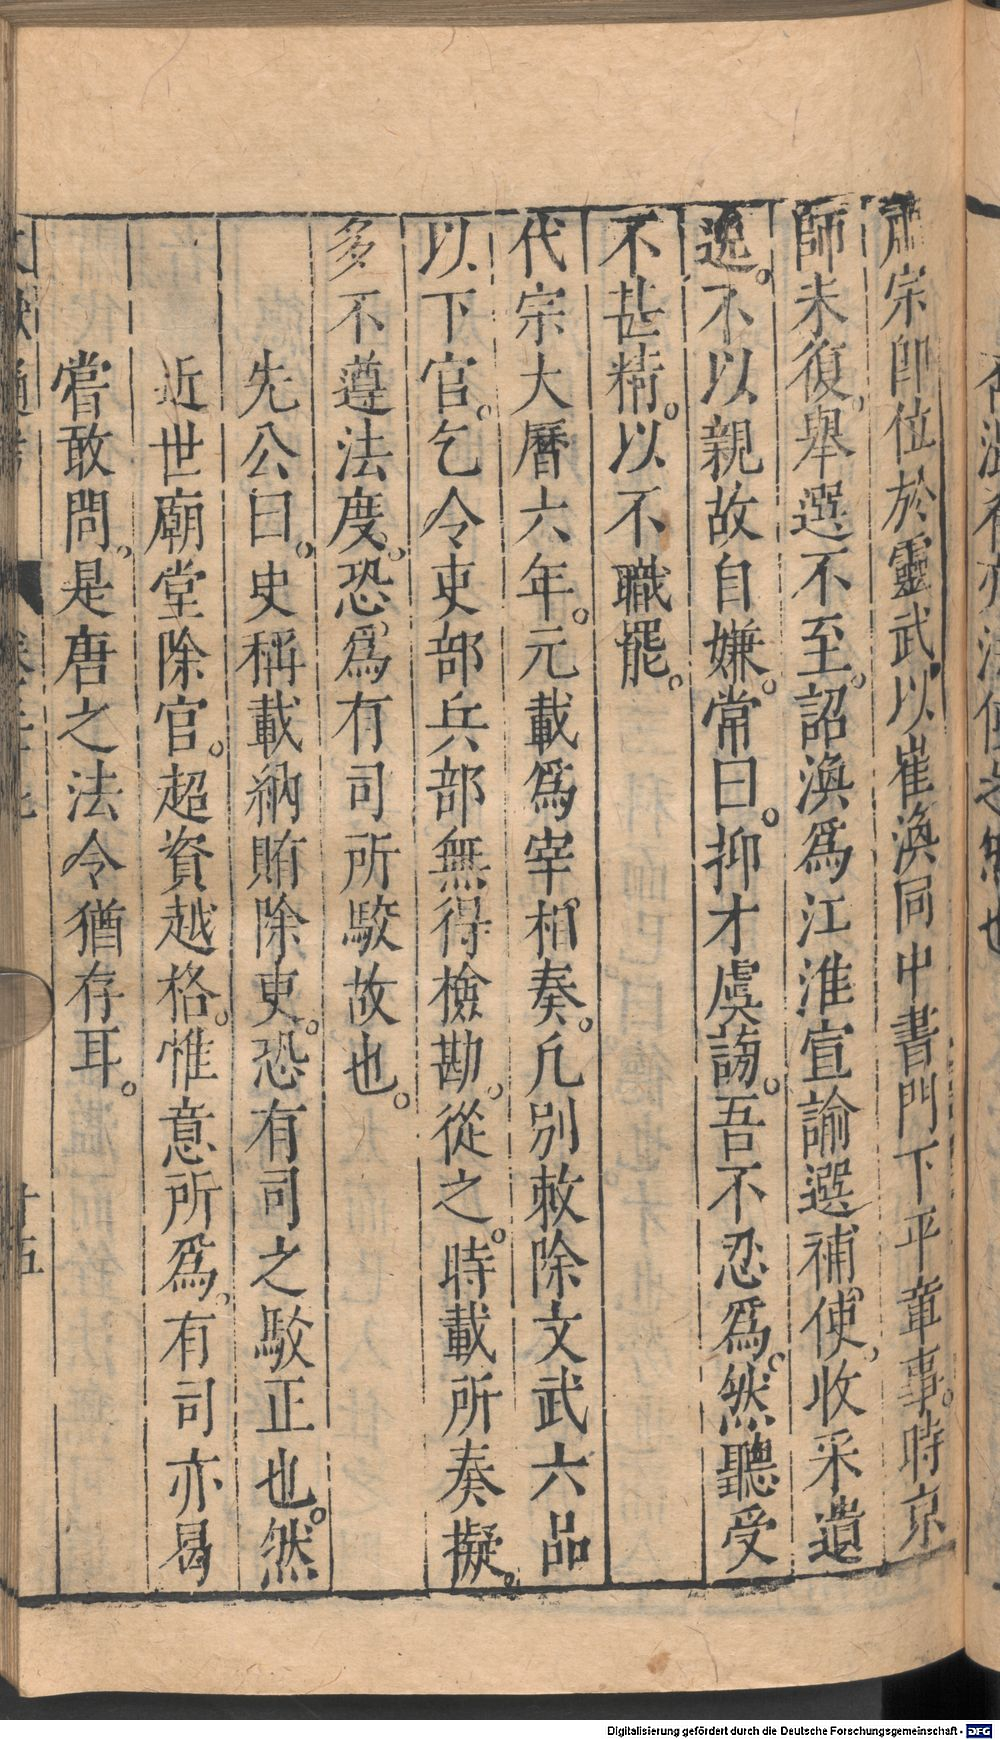 肅宗即位於靈武以崔渙同中書門下平章事。時京
師未復。舉選不至。詔渙爲江淮宣諭選補使。收采遺
逸。不以親故自嫌。常曰。抑才虞謗。吾不忍爲。然聽受
不甚精。以不職罷。
代宗大曆六年。元載爲宰相奏。凡別敕除文武六品
以下官。乞令吏部兵部無得檢勘。從之。時載所奏擬。
多不遵法度。恐爲有司所駁故也。
先公曰。史稱載納賄除吏。恐有司之駁正也。然
近世廟堂除官。超資越格。惟意所爲。有司亦曷
嘗敢問。是唐之法令猶存耳。
Digitalisierung gefördert durch die Deutsche Forschungsgemeinschaft - DFG